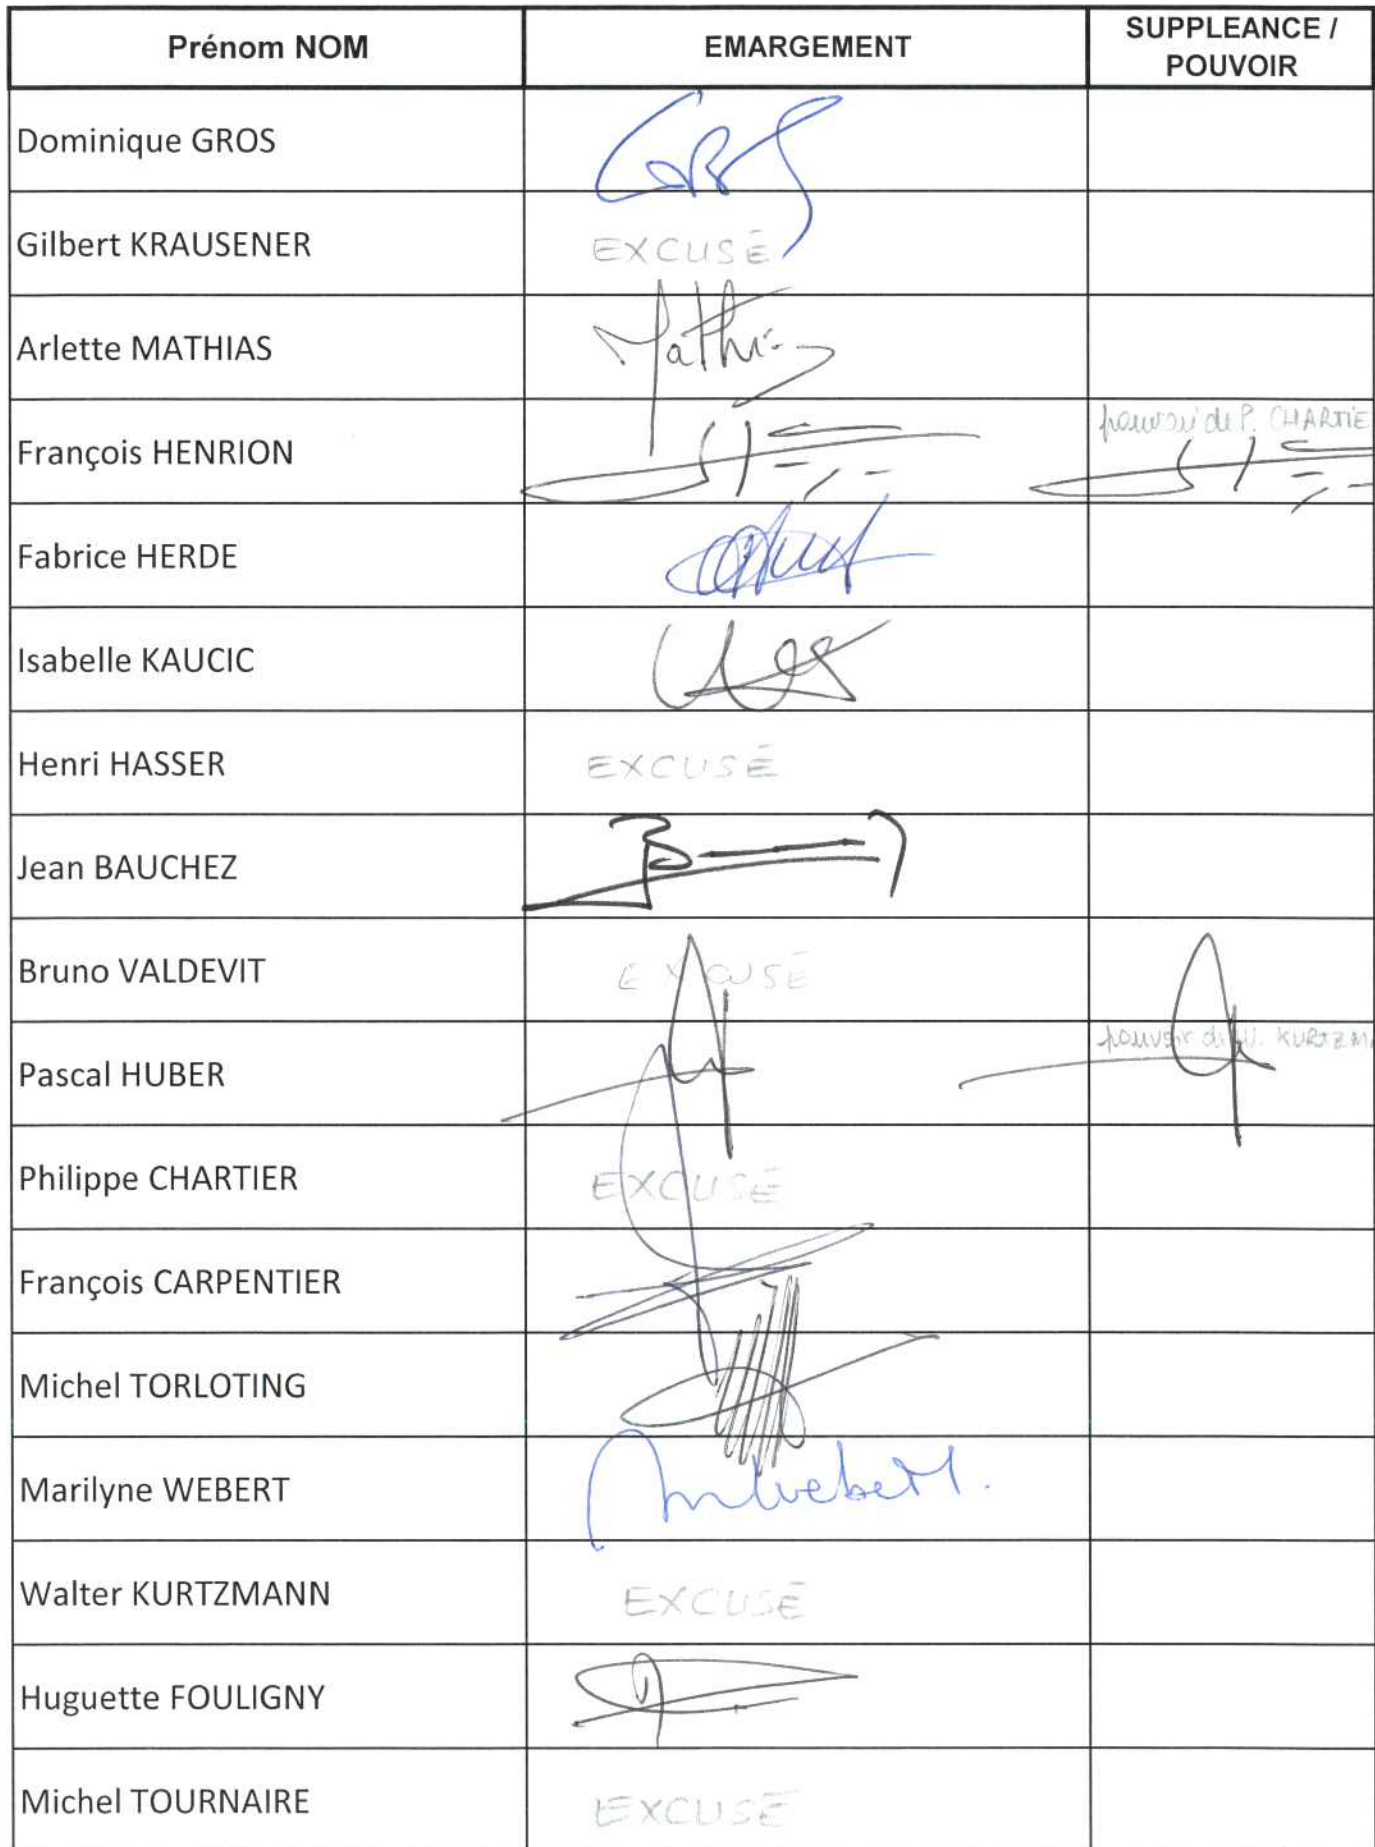 Prénom NOM EMARGEMENT SUPPLEANCE /
POUVOIR
Dominique GROS
Gilbert KRAUSENER EXCUSÉ
Arlette MATHIAS Mathias
François HENRION pouvoir de P. CHARTIE
Fabrice HERDE
Isabelle KAUCIC
Henri HASSER EXCUSÉ
Jean BAUCHEZ
Bruno VALDEVIT EXCUSÉ
Pascal HUBER pouvoir de W. KURTZM
Philippe CHARTIER EXCUSÉ
François CARPENTIER
Michel TORLOTING
Marilyne WEBERT
Walter KURTZMANN EXCUSÉ
Huguette FOULIGNY
Michel TOURNAIRE EXCUSÉ